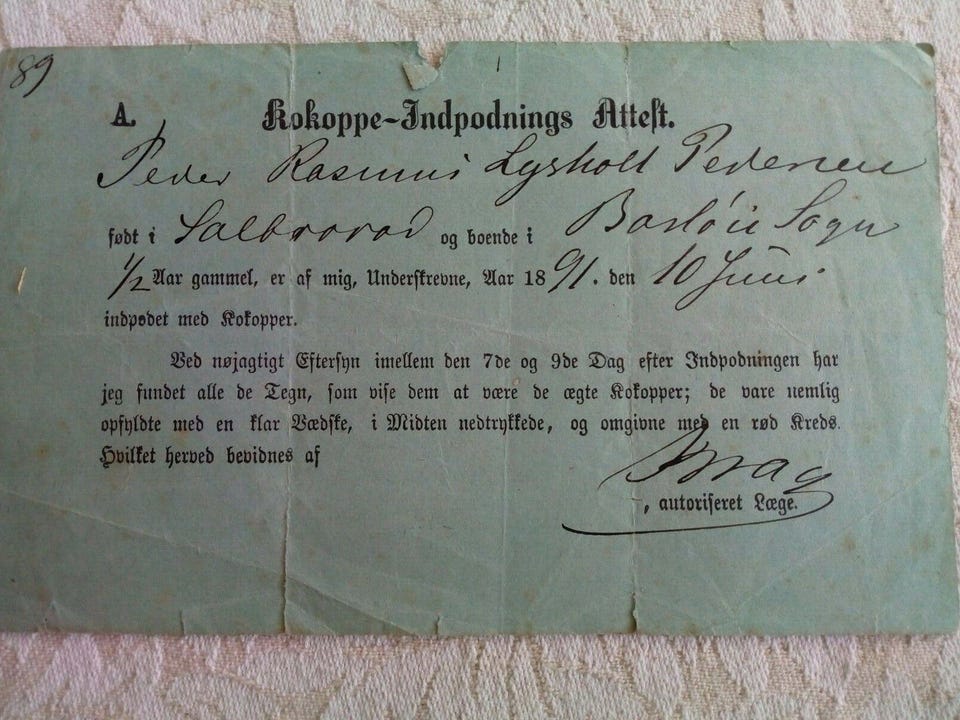 89
A. Kokoppe-Indpodnings Attest.
Peder Rasmus Lysholdt Pedersen
født i Salbrovad og boende i Barløse Sogn
1/2 Aar gammel, er af mig, Underskrevne, Aar 1891. den 10 Juni
indpodet med Kokopper.
Ved nøjagtigt Eftersyn imellem den 7de og 9de Dag efter Indpodningen har
jeg fundet alle de Tegn, som vise dem at være de ægte Kokopper; de vare nemlig
opfyldte med en klar Vædske, i Midten nedtrykkede, og omgivne med en rød Kreds.
Hvilket herved bevidnes af
, autoriseret Læge.